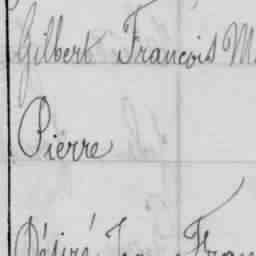 Gilbert François M
Pierre
Désiré